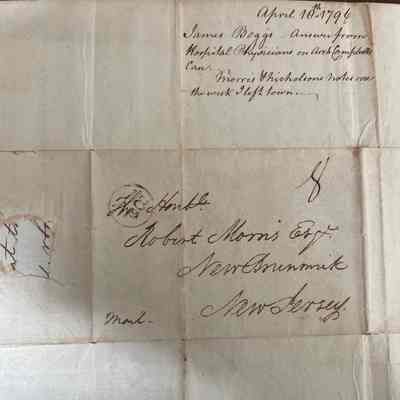 April 18th 1796
James Boggs - Answer from
Hospital Physicians on Arch Campbells
Can
Morris & Nicholsons notes
the week I left town
8
The Honble
Robert Morris Esqr
New Brunswick
New Jersey